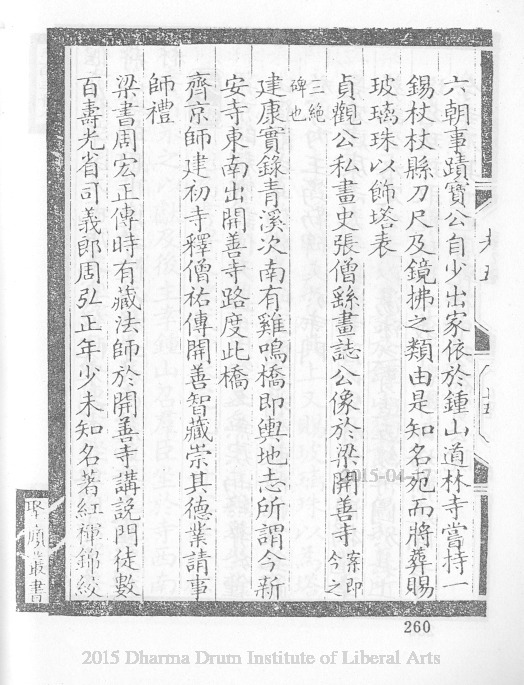 六朝事蹟寶公自少出家依於鍾山道林寺嘗持一
錫杖杖縣刀尺及鏡拂之類由是知名宛而將葬賜
玻璃珠以飾塔表
貞觀公私畫史張僧繇畫誌公像於梁開善寺案即今之
三絕碑也
建康實錄青溪次南有雞鳴橋即輿地志所謂今新
安寺東南出開善寺路度此橋
齊京師建初寺釋僧祐傳開善智藏崇其德業請事
師禮
梁書周宏正傳時有藏法師於開善寺講說門徒數
百壽光省司義郎周弘正年少未知名著紅褌錦絞
卷五
聚順叢書
2015-04-17
260
2015 Dharma Drum Institute of Liberal Arts